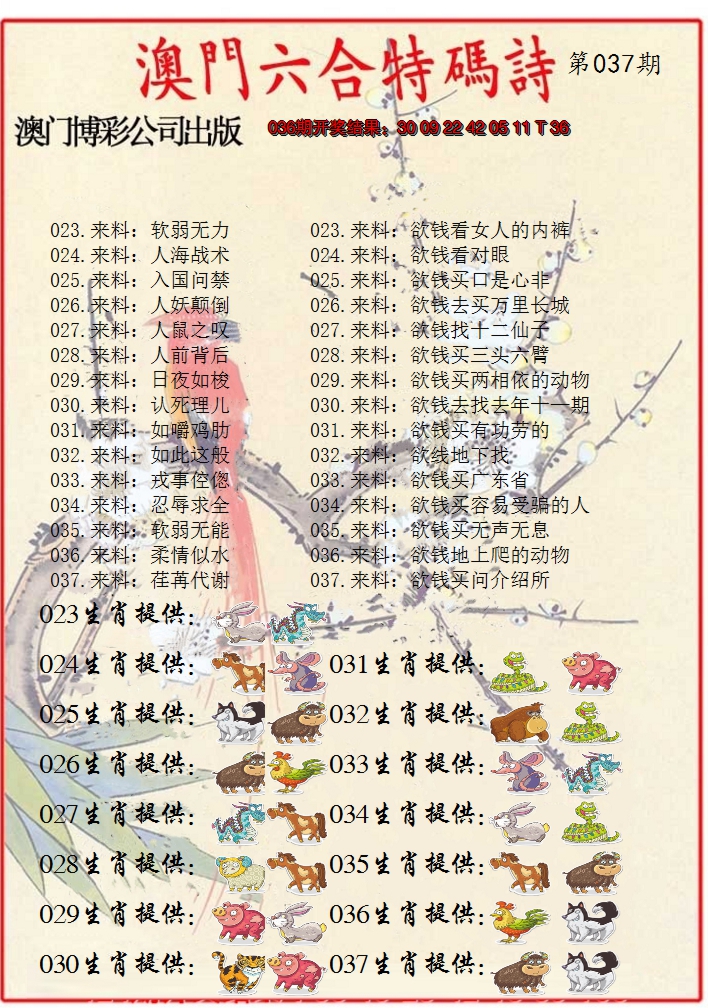 澳門六合特碼詩 第037期
澳门博彩公司出版 036期开奖结果：30 09 22 42 05 11 T 36
023.来料：软弱无力 023.来料：欲钱看女人的内裤
024.来料：人海战术 024.来料：欲钱看对眼
025.来料：入国问禁 025.来料：欲钱买口是心非
026.来料：人妖颠倒 026.来料：欲钱去买万里长城
027.来料：人鼠之叹 027.来料：欲钱找十二仙子
028.来料：人前背后 028.来料：欲钱买三头六臂
029.来料：日夜如梭 029.来料：欲钱买两相依的动物
030.来料：认死理儿 030.来料：欲钱去找去年十一期
031.来料：如嚼鸡肋 031.来料：欲钱买有功劳的
032.来料：如此这般 032.来料：欲线地下找
033.来料：戎事倥偬 033.来料：欲钱买广东省
034.来料：忍辱求全 034.来料：欲钱买容易受骗的人
035.来料：软弱无能 035.来料：欲钱买无声无息
036.来料：柔情似水 036.来料：欲钱地上爬的动物
037.来料：荏苒代谢 037.来料：欲钱买问介绍所
023生肖提供：
024生肖提供： 031生肖提供：
025生肖提供： 032生肖提供：
026生肖提供： 033生肖提供：
027生肖提供： 034生肖提供：
028生肖提供： 035生肖提供：
029生肖提供： 036生肖提供：
030生肖提供： 037生肖提供：